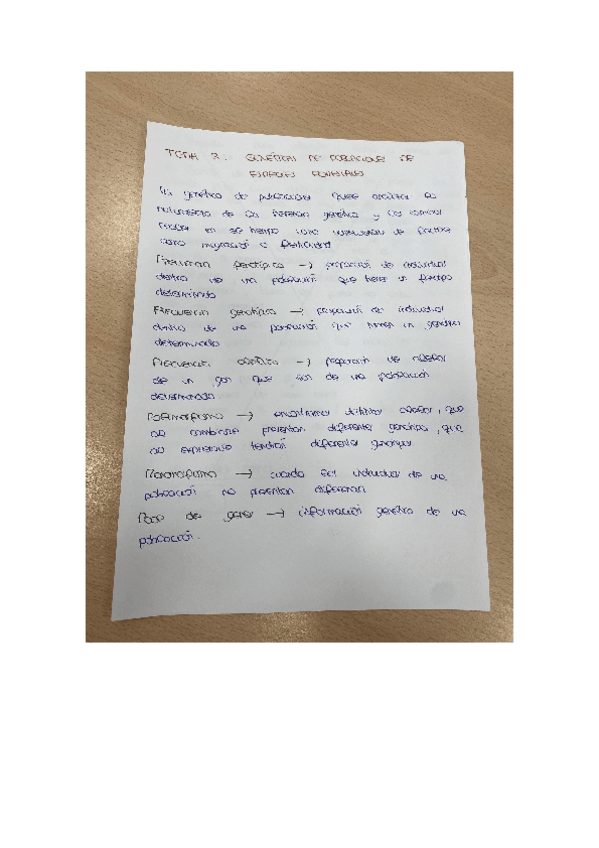 TEMA 2. GENÉTICA DE POBLACIONES DE
ESPECIES FORESTALES
La genética de poblaciones quiere analizar
de la herencia genética y los
en el tiempo como
como migración o
Frecuencia fenotípica → proporción de individuos
dentro de una población que tiene un fenotipo
determinado
Frecuencia genotípica → proporción de individuos
dentro de una población que tienen un genotipo
determinado
Frecuencia alélica → proporción de alelos
de un gen que son de una población
determinada.
Polimorfismo → encontramos distintos alelos, que
al combinarse presentan diferente genotipo, que
al expresarse tendrán diferente
Monomorfismo → cuando los individuos de una
población no presentan diferencias
Pool de genes → información genética de una
población.